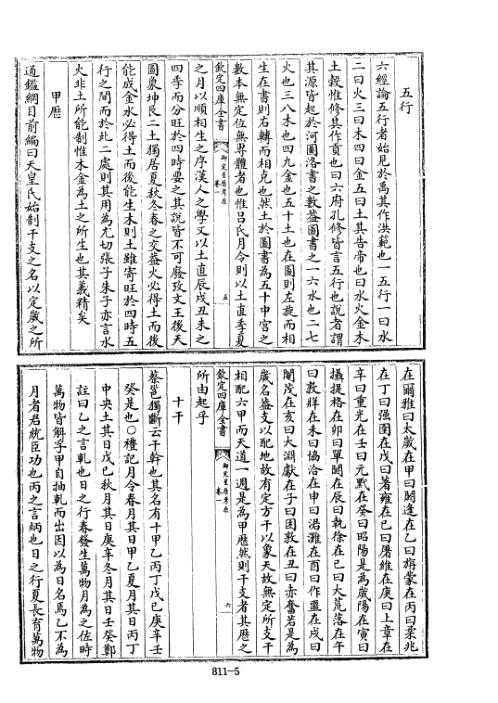 五行
六經論五行者始見於禹其作洪範也一五行一曰水
二曰火三曰木四曰金五曰土其告帝也曰水火金木
土穀惟修其作貢也曰六府孔修皆言五行也說者謂
其源皆起於河圖洛書之數蓋圖書之一六水也二七
火也三八木也四九金也五十土也在圖則左旋而相
生在書則右轉而相克也然土於圖書為五十中宮之
數本無定位無專體者也惟呂氏月令則以土直季夏
欽定四庫全書
御定星歷考原
卷一
五
之月以順相生之序漢人之學又以土直辰戌丑未之
四季而分旺於四時要之其說皆不可廢攷文王後天
圖象坤艮二土獨居夏秋冬春之交蓋火必得土而後
能成金水必得土而後能生木則土雖寄旺於四時五
行之間而於此二處則其用為尤切張子朱子亦言水
火非土所能制惟木金為土之所生也其義精矣
甲歷
通鑑綱目前編曰天皇氏始制干支之名以定歲之所
在爾雅曰太歲在甲曰閼逢在乙曰旃蒙在丙曰柔兆
在丁曰强圉在戊曰著雍在己曰屠維在庚曰上章在
辛曰重光在壬曰元黓在癸曰昭陽是為歲陽在寅曰
攝提格在卯曰單閼在辰曰執徐在巳曰大荒落在午
曰敦牂在未曰協洽在申曰涒灘在酉曰作噩在戌曰
閹茂在亥曰大淵獻在子曰困敦在丑曰赤奮若是為
歲名蓋支以配地故有定方干以象天故無定所支干
相配六甲而天道一週是為甲歷然則干支者其歷之
欽定四庫全書
御定星歷考原
卷一
六
所由起乎
十干
蔡邕獨斷云干幹也其名有十甲乙丙丁戊己庚辛壬
癸是也○禮記月令春月其日甲乙夏月其日丙丁
中央土其日戊己秋月其日庚辛冬月其日壬癸鄭
註曰乙之言軋也日之行春發生萬物月為之佐時
萬物皆解孚甲自抽軋而出因以為日名焉乙不為
月者君統臣功也丙之言炳也日之行夏長育萬物
811-5